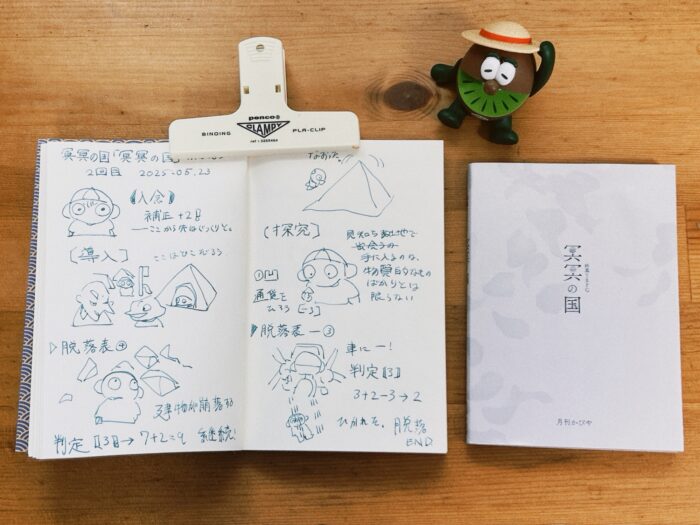 penco®
CLAMPY
BINDING
PLA-CLIP
冥冥の国「冥冥の国」
2回目 2025-05.23
《入念》
補正+2
ここから先はじっくりと。
[導入]
ここはひこむろう
▷脱落表④
建物が崩落する
判定【3】→7+2=9 継続!
なおった。
[探究]
見知らぬ地で
出会うの
手に入るのは、
物質的なもの
ばかりとは
限らない
通貨を
ひろう
[-3]
▷脱落表-③
車に-!
判定【3】
3+2-3→2
ひかれた。脱落
END
冥冥の国
月刊かびや